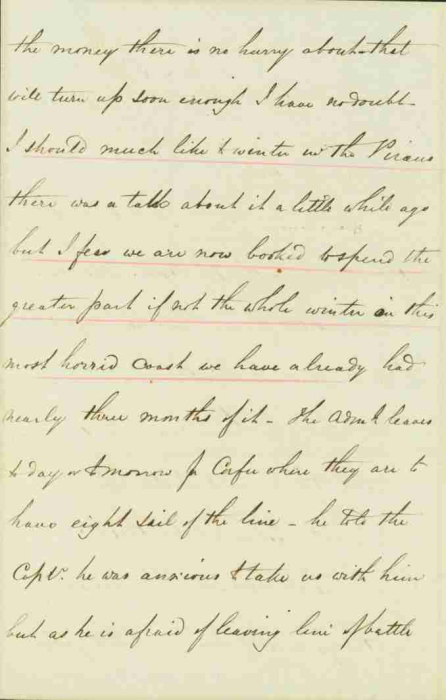 the money there is no hurry about that
will turn up soon enough I have no doubt -
I should much like to winter in the Piraus
there was a talk about it a little while ago
but I fear we are now booked to spend the
greater part if not the whole winter on this
most horrid coast we have already had
nearly three months of it - The Adml leaves
to day or tomorrow for Corfu where they are to
have eight sail of the line - he told the
Capt. he was anxious to take us with him
but as he is afraid of leaving line of battle